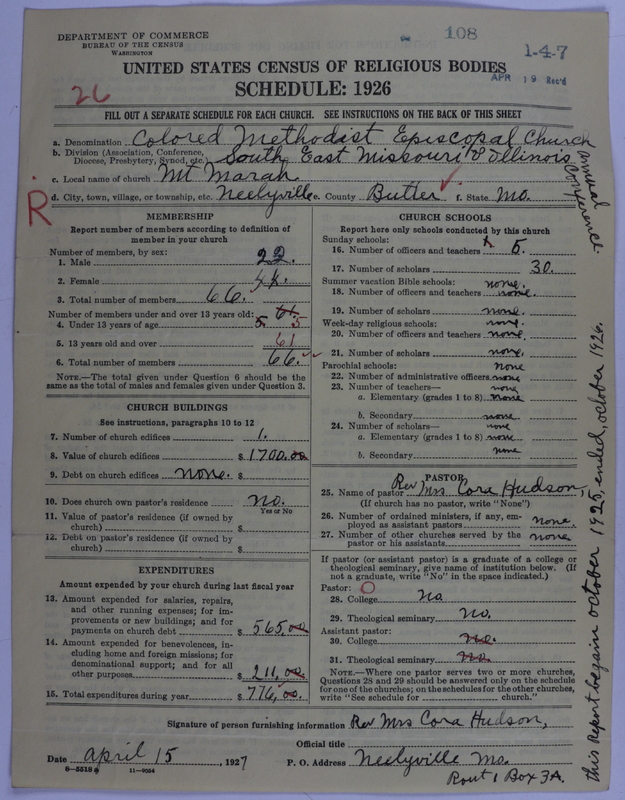 DEPARTMENT OF COMMERCE
BUREAU OF THE CENSUS
WASHINGTON
108
1-4-7
APR 19 Rec'd
UNITED STATES CENSUS OF RELIGIOUS BODIES
SCHEDULE: 1926
26
FILL OUT A SEPARATE SCHEDULE FOR EACH CHURCH. SEE INSTRUCTIONS ON THE BACK OF THIS SHEET
a. Denomination Colored Methodist Episcopal Church
b. Division (Association, Conference, Diocese, Presbytery, Synod, etc.) South East Missouri & Illinois
c. Local name of church Mt Marah
d. City, town, village, or township, etc. Neelyville e. County Butler f. State Mo.
R
MEMBERSHIP
Report number of members according to definition of
member in your church
Number of members, by sex:
1. Male 22.
2. Female 44.
3. Total number of members 66.
Number of members under and over 13 years old: 61
4. Under 13 years of age 5. 5
5. 13 years old and over 61
6. Total number of members 66.
NOTE.—The total given under Question 6 should be
same as the total of males and females given under Question 3.
CHURCH BUILDINGS
See instructions, paragraphs 10 to 12
7. Number of church edifices 1.
8. Value of church edifices $ 1700.00
9. Debt on church edifices none. $
10. Does church own pastor's residence no.
Yes or No
11. Value of pastor's residence (if owned by
church) $
12. Debt on pastor's residence (if owned by
church) $
EXPENDITURES
Amount expended by your church during last fiscal year
13. Amount expended for salaries, repairs,
and other running expenses; for im-
provements or new buildings; and for
payments on church debt $ 565.00
14. Amount expended for benevolences, in-
cluding home and foreign missions; for
denominational support; and for all
other purposes $ 211.00
15. Total expenditures during year $ 776.00.
CHURCH SCHOOLS
Report here only schools conducted by this church
Sunday schools:
16. Number of officers and teachers 5.
17. Number of scholars 30.
Summer vacation Bible schools: none.
18. Number of officers and teachers none.
19. Number of scholars none.
Week-day religious schools: none.
20. Number of officers and teachers none.
21. Number of scholars none.
Parochial schools: none
22. Number of administrative officers none.
23. Number of teachers— none
a. Elementary (grades 1 to 8) none
b. Secondary none
24. Number of scholars— none
a. Elementary (grades 1 to 8) none.
b. Secondary none
PASTOR
25. Name of pastor Rev Mrs Cora Hudson,
(If church has no pastor, write "None")
26. Number of ordained ministers, if any, em-
ployed as assistant pastors none.
27. Number of other churches served by the
pastor or his assistants none
If pastor (or assistant pastor) is a graduate of a college or
theological seminary, give name of institution below. (If
not a graduate, write "No" in the space indicated.)
Pastor: O
28. College no
29. Theological seminary no.
Assistant pastor:
30. College no.
31. Theological seminary no.
NOTE.—Where one pastor serves two or more churches,
Questions 28 and 29 should be answered only on the schedule
for one of the churches; on the schedules for the other churches,
write "See schedule for church."
Signature of person furnishing information Rev Mrs Cora Hudson,
Official title
Date april 15, 1927
P. O. Address Neelyville Mo.
Rout 1 Box 3A.
6—5518a 11—9064
this Report began october 1925, ended, october 1926.